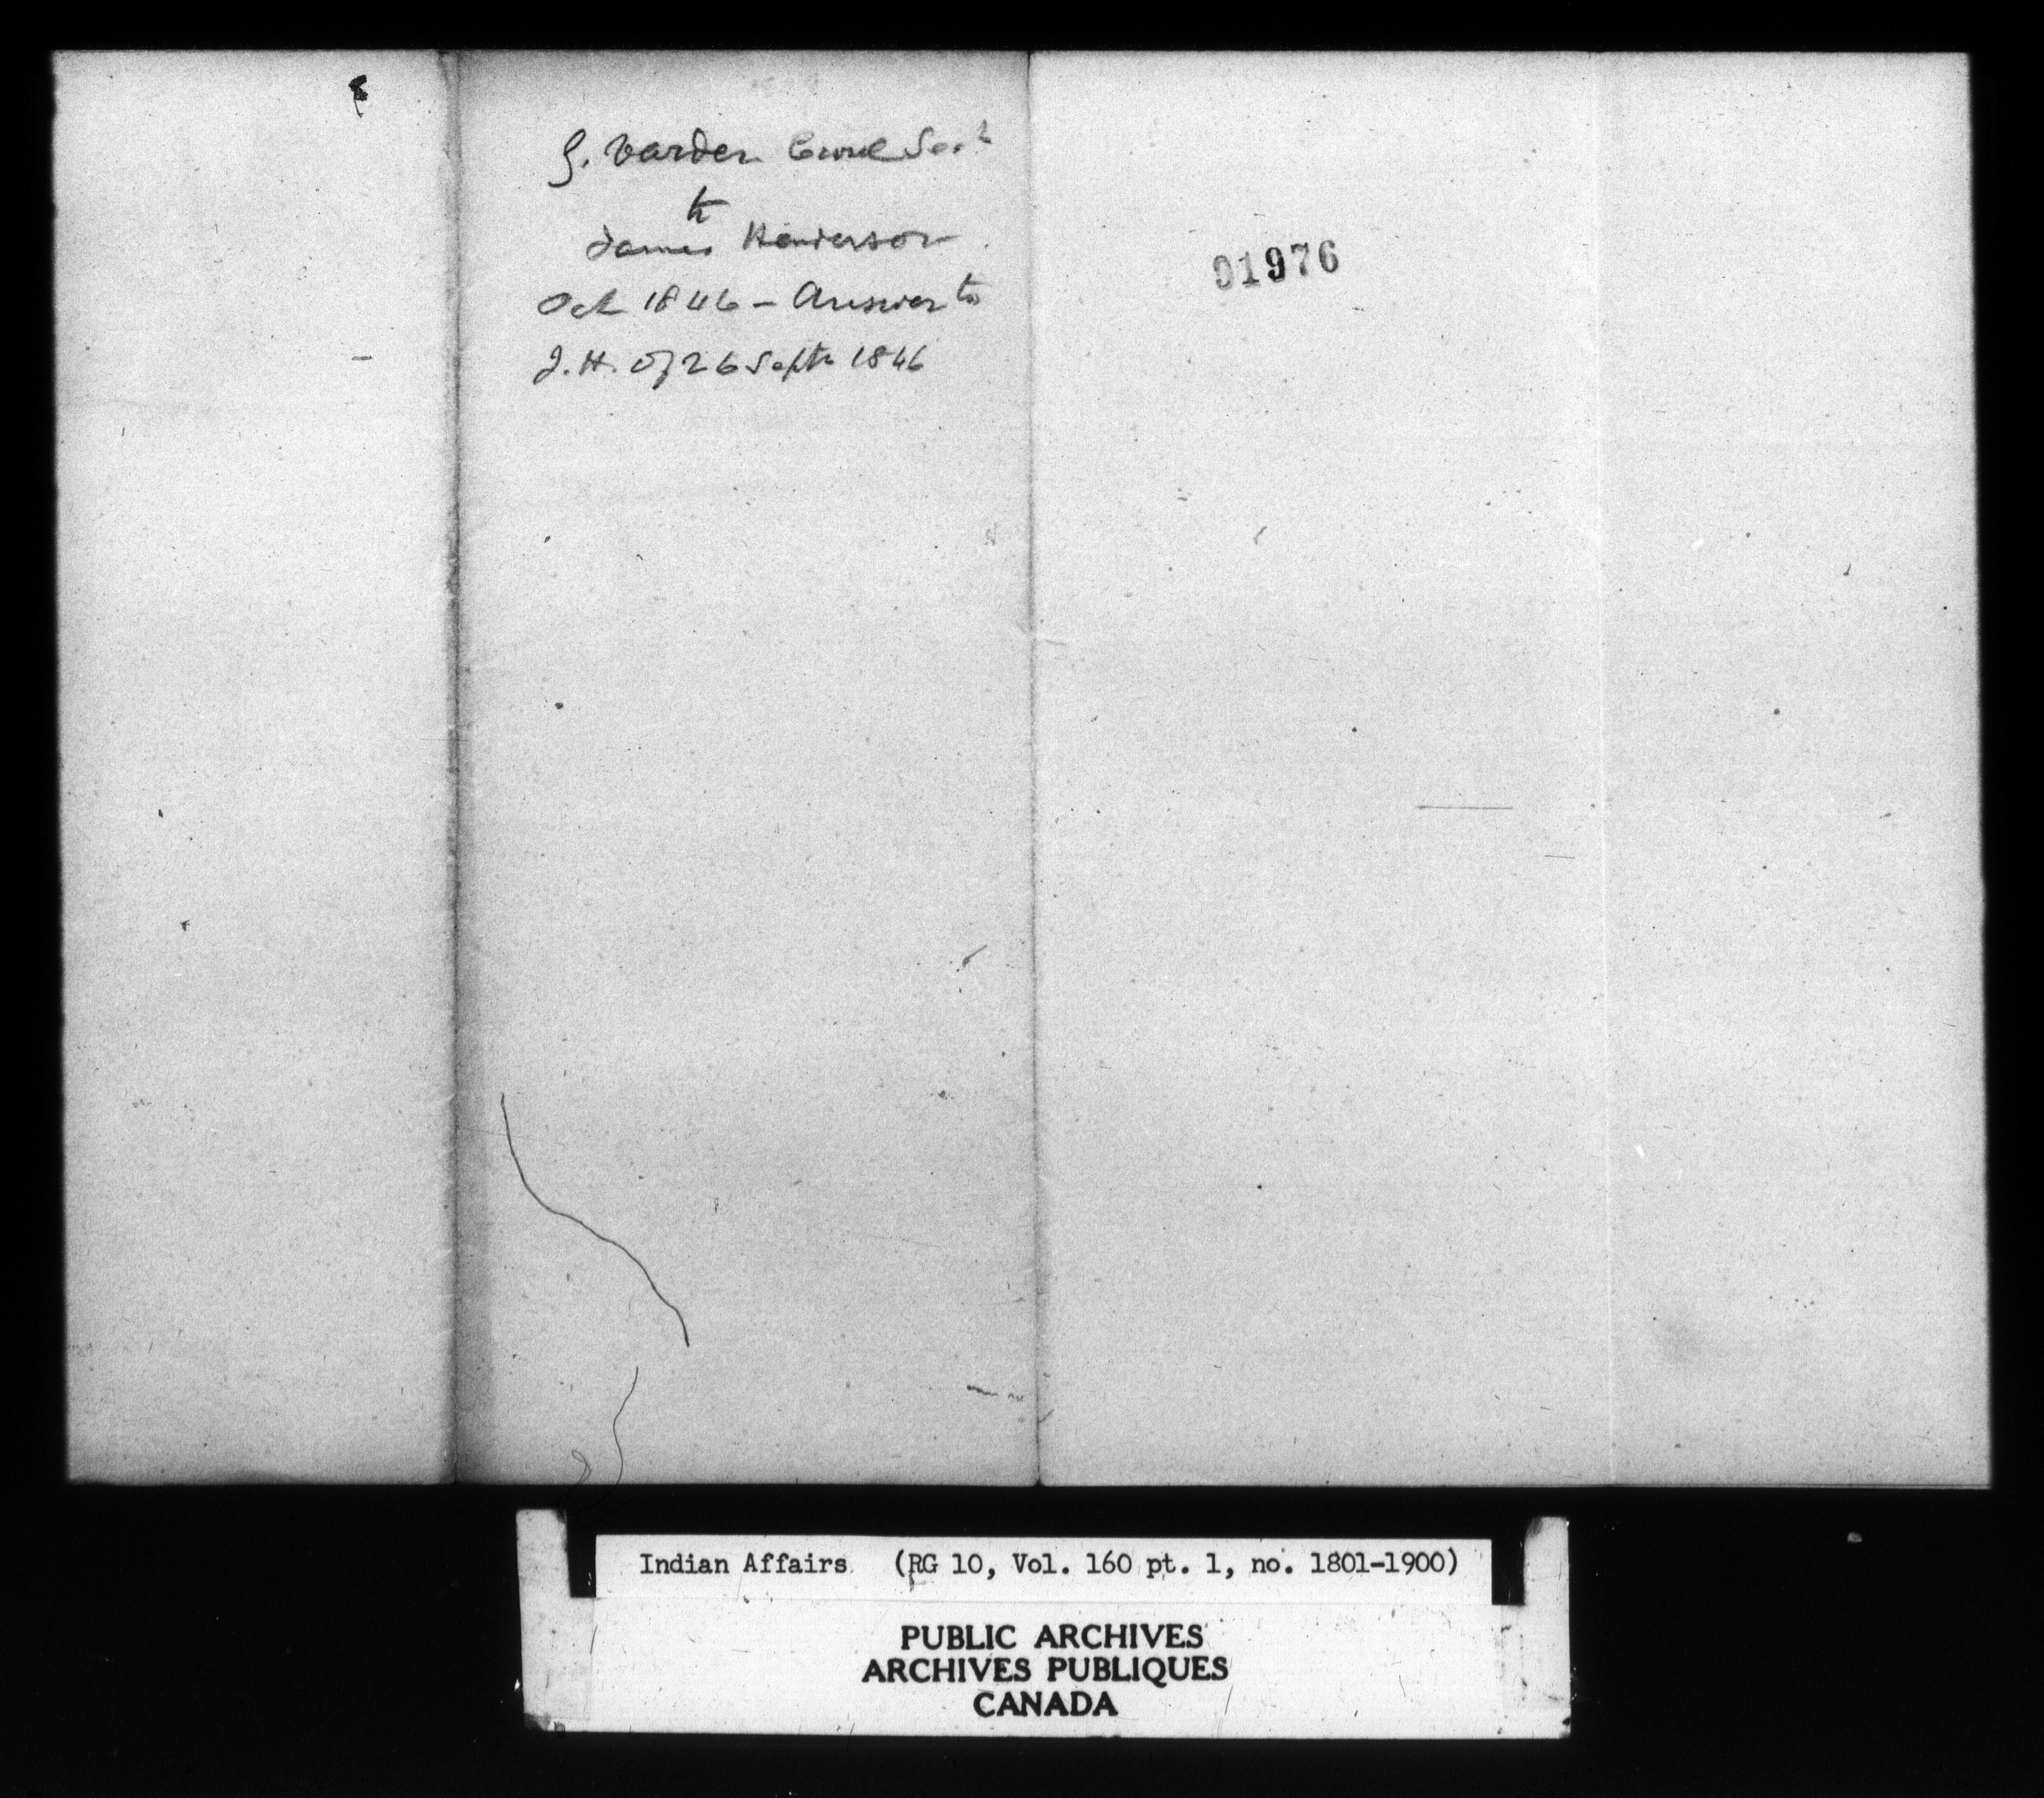 G. Varden Civil Sect
to
James Henderson
Oct 1846 – Answer to
J. H. of 26 Septr 1846
01976
Indian Affairs (RG 10, Vol. 160 pt. 1, no. 1801-1900)
PUBLIC ARCHIVES
ARCHIVES PUBLIQUES
CANADA